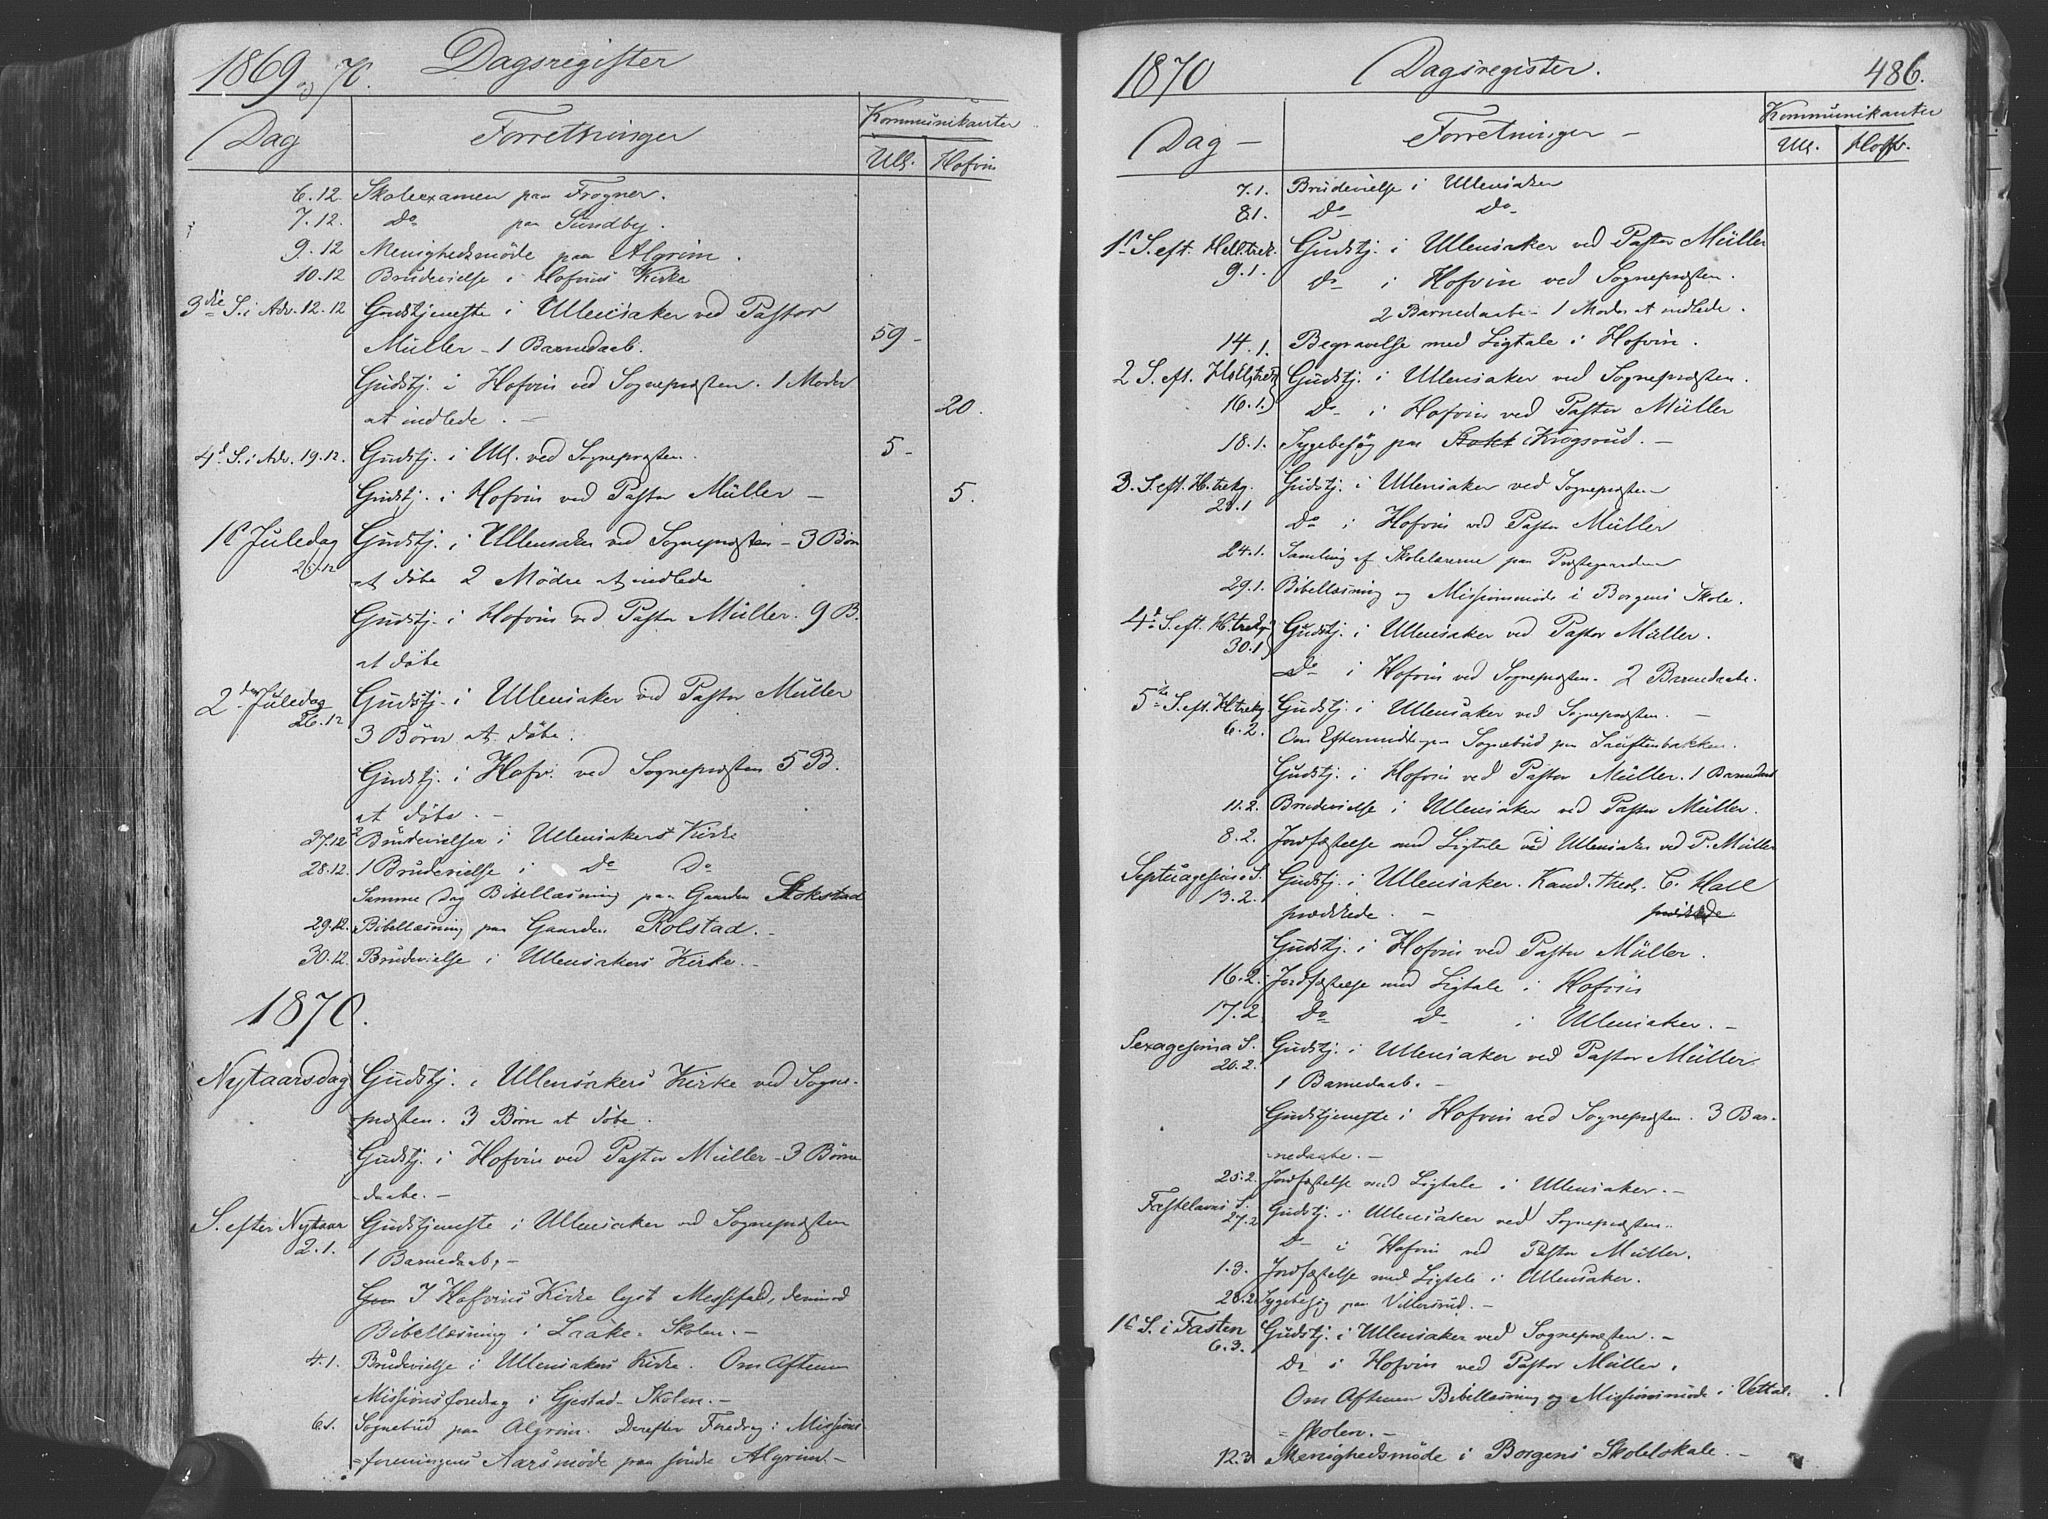 1869 og 70. Dagsregister
Dag Forretninger Kommunikanter
Ull. Hofvin
6.12. Skoleexamen paa Frogner.
7.12. Do paa Sundby.
9.12 Menighedsmøde paa Algrim.
10.12 Brudevielse i Hofvins Kirke
3die S. i Adv. 12.12 Gudstjeneste i Ullensaker ved Pastor
Müller - 1 Barnedaab. 59 -
Gudstj. i Hofvin ved Sognepræsten. 1 Moder
at indlede. - 20.
4de S. i Adv. 19.12. Gudstj. i Ull. ved Sognepræsten. 5 -
Gudstj. i Hofvin ved Pastor Müller - 5.
1ste Juledag Gudstj. i Ullensaker ved Sognepræsten - 3 Børn
25.12 at døbe 2 Mødre at indlede
Gudstj. i Hofvin ved Pastor Müller. 9 B.
at døbe
2den Juledag Gudstj. i Ullensaker ved Pastor Müller
26.12 3 Børn at døbe.
Gudstj. i Hofv. ved Sognepræsten 5 B.
at døbe. -
27.12 2 Brudevielser i Ullensakers Kirke
28.12. 1 Brudevielse i Do Do
Samme Dag Bibellæsning paa Gaarden Stokstad
29.12. Bibellæsning paa Gaarden Rolstad. -
30.12. Brudevielse i Ullensakers Kirke. -
1870.
Nytaarsdag Gudstj. i Ullensakers Kirke ved Sogne-
præsten. 3 Børn at døbe.
Gudstj. i Hofvin ved Pastor Müller - 3 Børne
daabe. -
S. efter Nytaar Gudstjeneste i Ullensaker ved Sognepræsten
2.1. 1 Barnedaab, -
I Hofvins Kirke lyst Messefald, derimod
Bibellæsning i Laake-Skolen. -
4.1. Brudevielse i Ullensakers Kirke. Om Aftenen
Missionsforedrag i Gjestad-Skolen. -
6.1. Sognebud paa Algrim. Derefter Foredrag i Missions-
=foreningens Aarsmøde paa søndre Algrim -
1870 Dagsregister. 486.
Dag - Forretninger - Kommunikanter
Ull. Hofv.
7.1. Brudevielse i Ullensaker
8.1. Do Do
1ste S. eft. Hell.trek. Gudstj. i Ullensaker ved Pastor Müller
9.1. Do i Hofvin ved Sognepræsten.
2 Barnedaabe - 1 Moder at indlede.
14.1. Begravelse med Ligtale i Hofvin.
2 S. eft. Hellgtrek Gudstj. i Ullensaker ved Sognepræsten.
16.1. Do i Hofvin ved Pastor Müller
18.1. Sygebesøg paa Stokk Krogsrud. -
3. S. eft. H. trekg. Gudstj. i Ullensaker ved Sognepræsten
23.1 Do i Hofvin ved Pastor Müller
24.1. Samling af Skolelærerne paa Præstegaarden
29.1. Bibellæsning og Missionsmøde i Borgens Skole.
4de S. eft. H.trekg. Gudstj. i Ullensaker ved Pastor Müller.
30.1 Do i Hofvin ved Sognepræsten. 2 Barnedaabe.
5te S. eft. H.trekg Gudstj. i Ullensaker ved Sognepræsten. -
6.2. Om Eftermiddagen Sognebud paa
Gudstj. i Hofvin ved Pastor Müller. 1 Barnedaab
11.2. Brudevielse i Ullensaker ved Pastor Müller.
8.2. Jordfæstelse med Ligtale i Ullensaker ved P. Müller
Septuagesima S. Gudstj. i Ullensaker. Kand. theol. C. Hall
13.2. prædikede. - prædikede
Gudstj. i Hofvin ved Pastor Müller.
16.2. Jordfæstelse med Ligtale i Hofvin
17.2 Do Do i Ullensaker. -
Sexagesima S. Gudstj. i Ullensaker ved Pastor Müller
20.2. 1 Barnedaab. -
Gudstjeneste i Hofvin ved Sognepræsten. 3 Bar-
nedaabe. -
25.2. Jordfæstelse med Ligtale i Ullensaker. -
Fastelavns S. Gudstj. i Ullensaker ved Sognepræsten.
27.2 Do i Hofvin ved Pastor Müller.
1.3. Jordfæstelse med Ligtale i Ullensaker.
28.2. Sygebesøg paa Villersrud. -
1ste S. i Fasten Gudstj. i Ullensaker ved Sognepræsten. -
6.3. Do i Hofvin ved Pastor Müller.
Om Aftenen Bibellæsning og Missionsmøde i Vethal-
=skolen. -
12.3 Menighedsmøde i Borgens Skolelokale. -